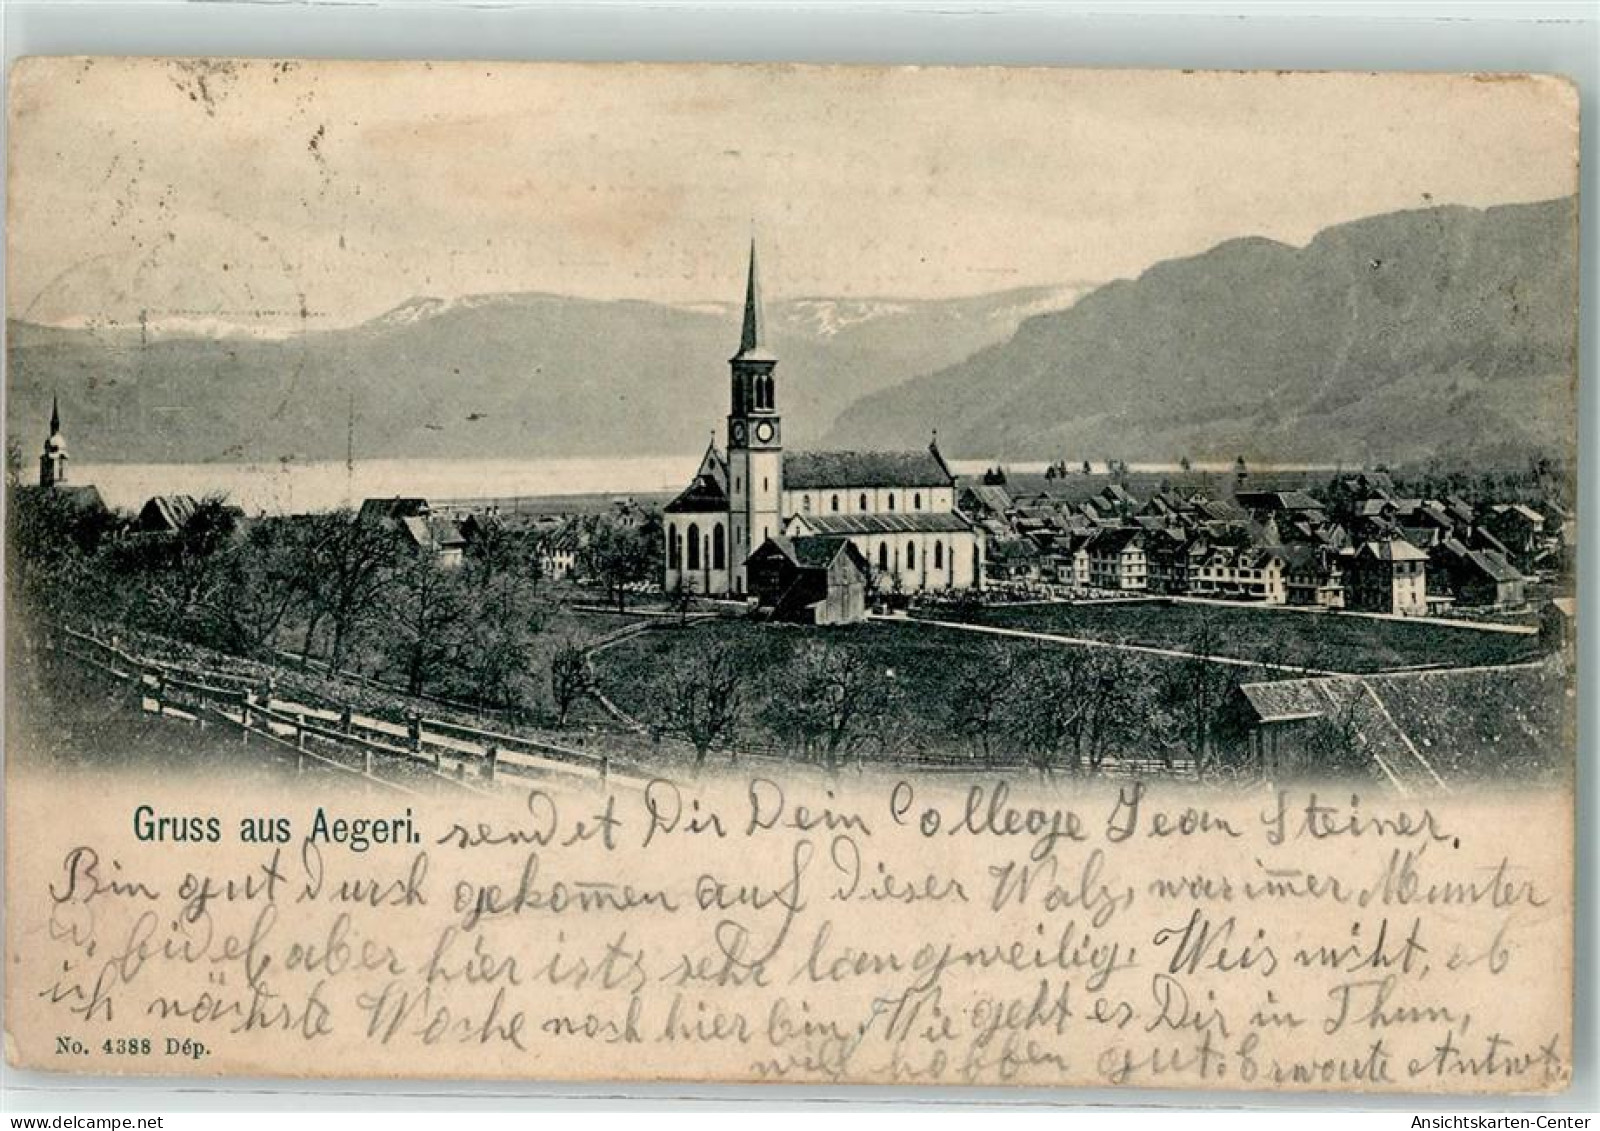 Gruss aus Aegeri. sendet Dir Dein College Jean Steiner.
Bin gut durch gekom̅en auf dieser Walz, war im̅er Munter
u. fidel, aber hier ists sehr langweilig. Weis nicht, ob
ich nächste Woche noch hier bin. Wie geht es Dir in Thun,
will hoffen gut. Erwarte Antwt.
No. 4388 Dép.
Ansichtskarten-Center